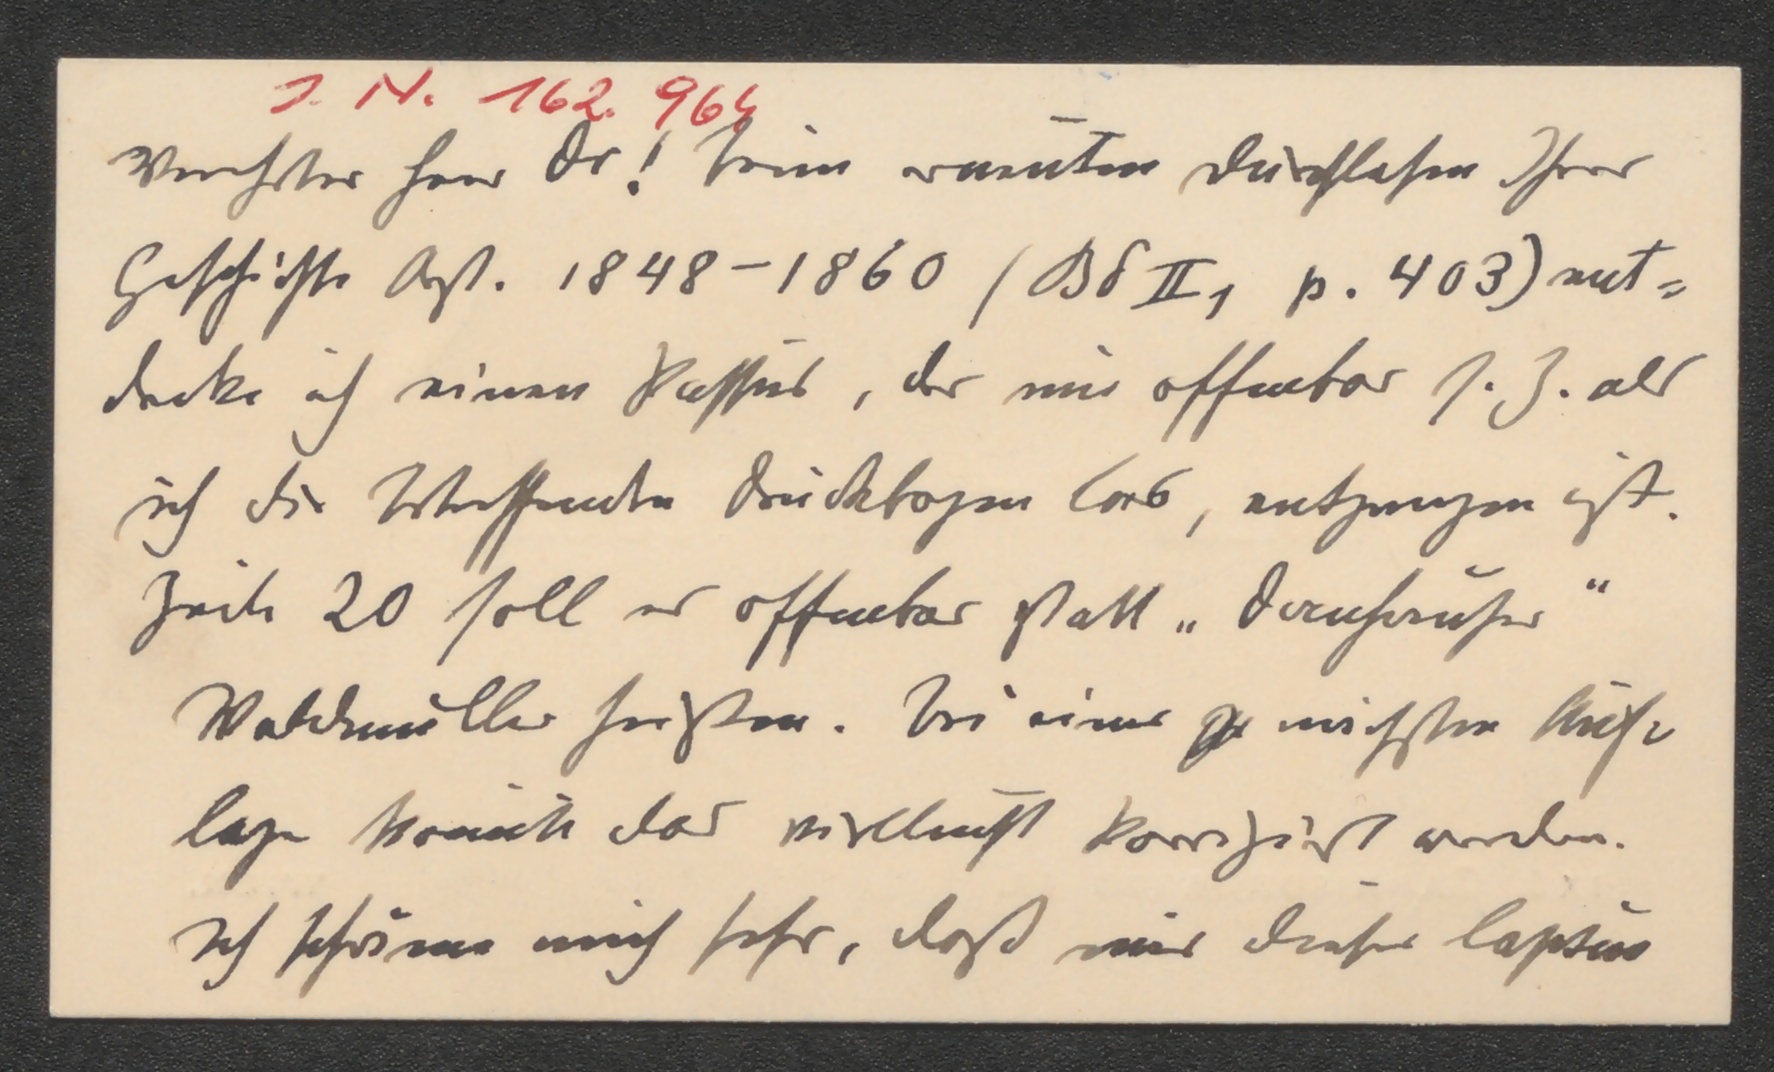 J. N. 162.964
Verehrter Herr Dr! Beim erneuten Durchlesen Ihrer
Geschichte Öst. 1848–1860 (Bd II, p. 403) ent=
decke ich einen Passus, der mir offenbar s. Z. als
ich die betreffenden Druckbogen las, entgangen ist.
Zeile 20 soll es offenbar statt „Dannhauser“
Waldmüller heißen. Bei einer nächsten Auf=
lage könnte das vielleicht korrigiert werden.
Ich schäme mich sehr, daß mir dieser lapsus